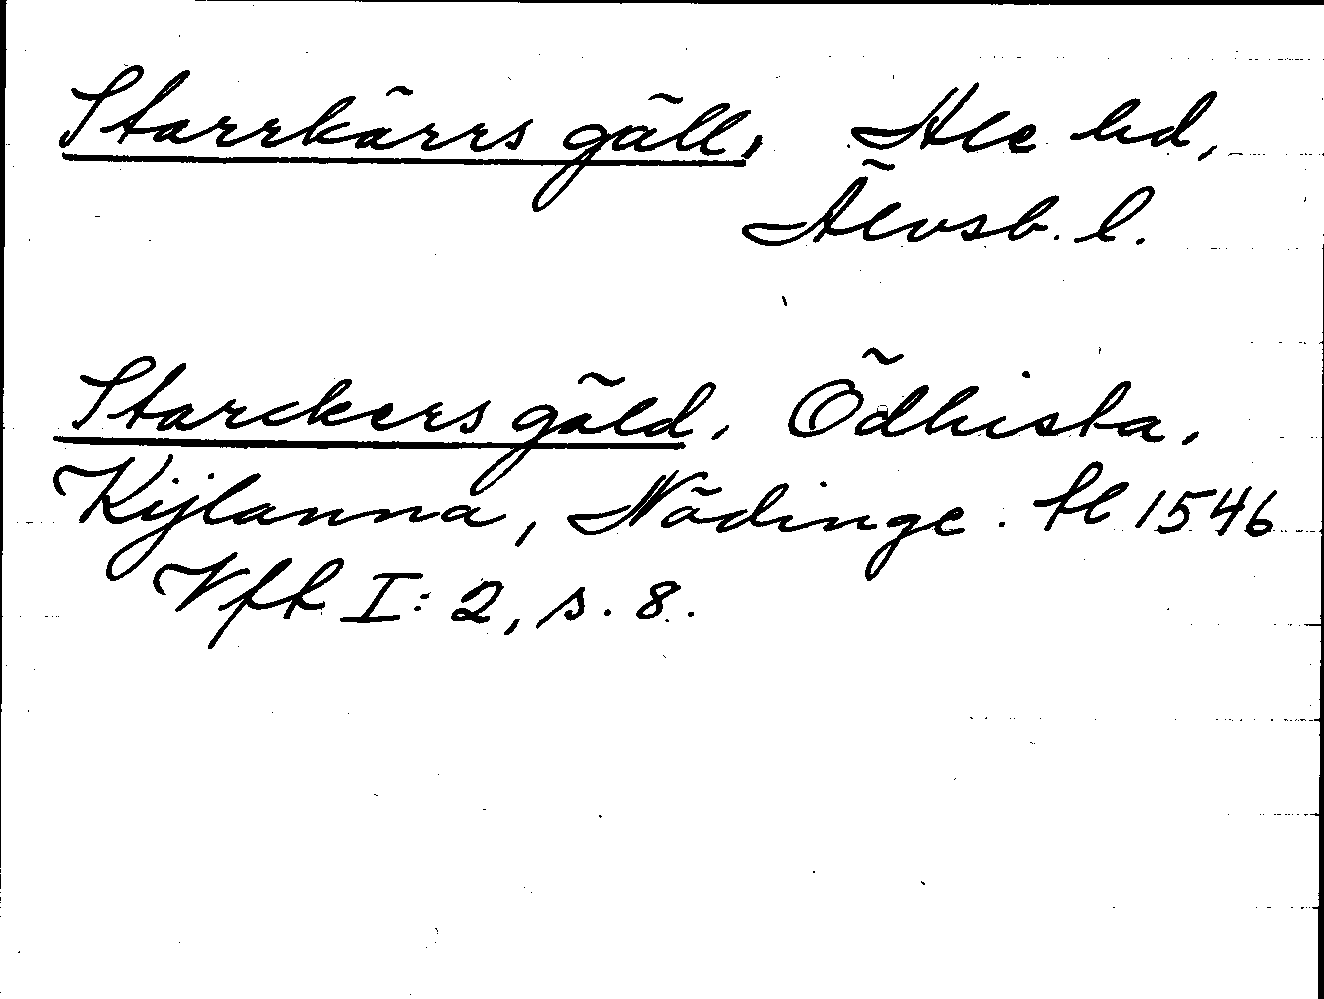 Starrkärrs gäll, Ale hd,
Älvsb. l.
Starckers gäld, Ödhista,
Kijlanna, Nödinge. fl 1546
Vfk I: 2, s. 8.